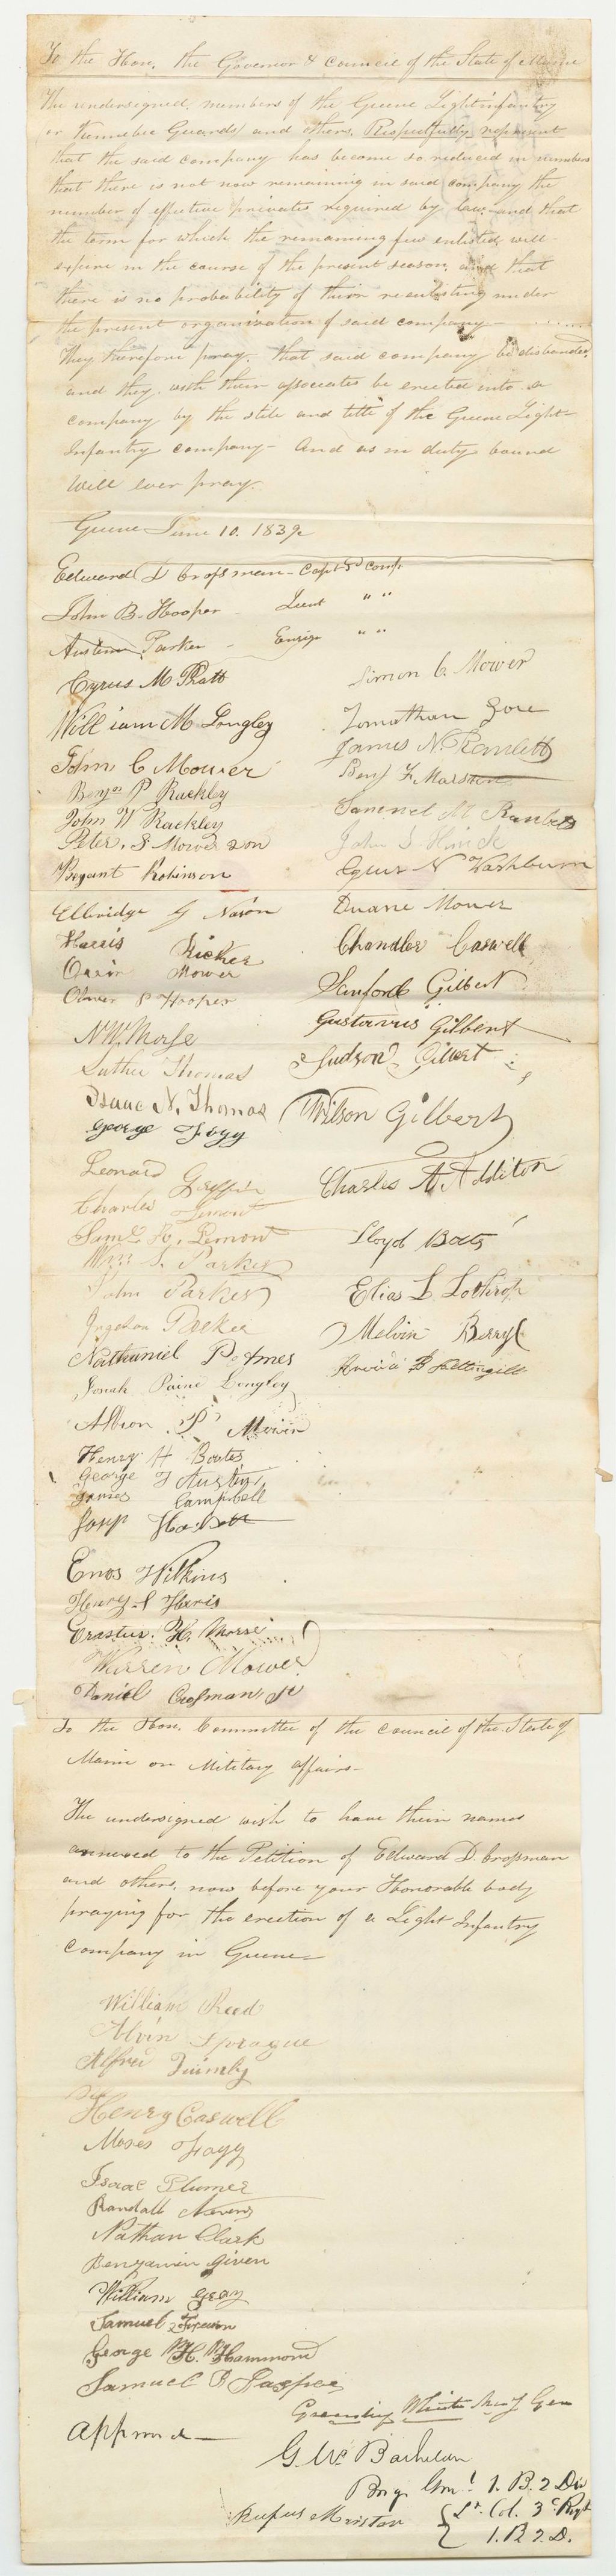 To the Hon. the Governor & Council of the State of Maine
The undersigned, members of the Greene Light infantry
or Kennebec Guards and others, Respectfully represent
that the said company has become so reduced in numbers
that there is not now remaining in said company the
number of effective privates required by law and that
the term for which the remaining few enlisted, will
expire in the course of the present season, and that
there is no probability of their reenlisting under
the present organization of said company
They therefore pray, that said company be disbanded,
and they with their associates be erected into a
company by the stile and title of the Greene Light
Infantry company - And as in duty bound
will ever pray.
Greene June 10. 1839.
Edward D Crossman - Capt Sd Comp.
John B. Hooper - Lieut " "
Austin Parker - Ensign " "
Cyrus M Pratt
William M Longley
John C Mower
Benj P Rackley
John W Rackley
Peter, S Mower 2on
Bryant Robinson
Elbridge G Nason
Harris Ricker
Orrin Mower
Oliver P Hooper
N W Morse
Luther Thomas
Isaac N. Thomas
George Fogg
Leonard Griffin
Charles Lemont
Saml. R. Lemont
Wm S. Parker
John Parker
Parker
Nathaniel P Ames
Jonah Paine Longley
Albion P
Henry H Boates
George F Austin
James Campbell
Enos Wilkins
Henry
Erastus. H. Morse
Warren Mower
Daniel Crossman, Jr
Simon C. Mower
Jonathan Gore
James N. Ranlett
Benj F. Marston
Samuel M Ranlett
John
Cyrus N Washburn
Duane Mower
Chandler Caswell
Sanford Gilbert
Gustavus Gilbert
Judson Gilbert
Wilson Gilbert
Charles A Additon
Lloyd Boats
Elias L Lothrop
Melvin Berry
B Pettingill
To the Hon. Committee of the Council of the State of
Maine on Military affairs -
The undersigned wish to have their names
annexed to the Petition of Edward D Crossman
and others, now before your Honorable body
praying for the erection of a Light Infantry
Company in Greene -
William Reed
Alvin Sprague
Alfred Quimby
Henry Caswell
Moses Fogg
Isaac Plumer
Randall Nevens
Nathan Clark
Benjamin Given
William Gray
Samuel
George W. H. Hammond
Samuel B
Approved -
Greenlief White Maj Gen
G. W. Bachelder
Brig. Genl. 1. B. 2 Div
Rufus Marston
Lt. Col. 3d Regt
1. B 2. D.